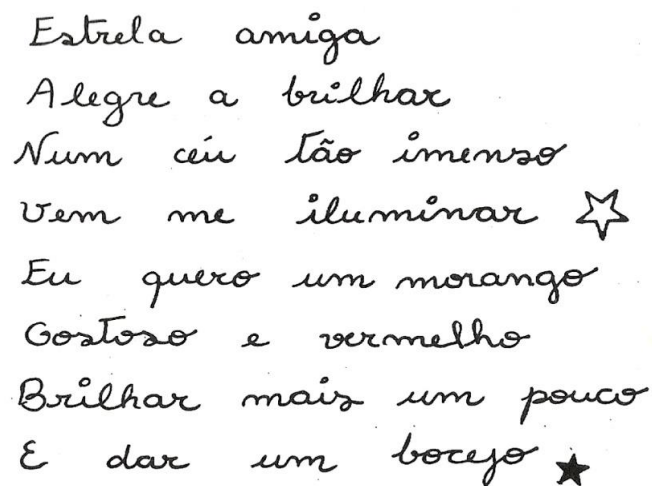 Estrela amiga
Alegre a brilhar
Num céu tão imenso
Vem me iluminar
Eu quero um morango
Gostoso e vermelho
Brilhar mais um pouco
E dar um bocejo